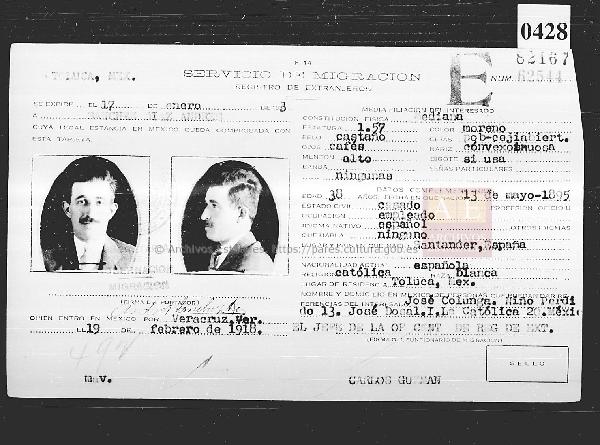 0428
F 14
TOLUCA, MEX.
SERVICIO DE MIGRACION
REGISTRO DE EXTRANJEROS
E
NUM.
82167
62544
SE EXPIDE EL 17 DE enero DE 193
CUYA LEGAL ESTANCIA EN MEXICO QUEDA COMPROBADA CON
ESTA TARJETA.
MEDIA FILIACION DEL INTERESADO
CONSTITUCION FISICA mediana
ESTATURA 1.57 COLOR moreno
PELO castaño CEJAS pob-cejiabiert.
OJOS cafés NARIZ
MENTON alto BIGOTE si usa
BARBA SEÑAS PARTICULARES
ningunas
DATOS COMPLEMENTARIOS
EDAD 38 AÑOS, FECHA EN QUE NACIO 13 de mayo-1895
ESTADO CIVIL casado PROFESION OFICIO U
OCUPACION empleado
IDIOMA NATIVO español OTROS IDIOMAS
QUE HABLA ninguno
Santander, España
NACIONALIDAD ACTUAL española
RELIGION católica RAZA blanca
LUGAR DE RESIDENCIA Toluca, Mex.
NOMBRE Y DOMICILIO EN MEXICO DE PERSONAS QUE PUEDAN DAR RE-
FERENCIAS DEL INTERESADO José Colunga. Niño Perdi
do 13. José Dosal, I. La Católica 2
© Archivos Estatales, https://pares.cultura.gob.es
QUIEN ENTRO EN MEXICO POR Veracruz, Ver.
EL 19 DE febrero de 1918.
EL JEFE DE LA OF CENT DE REG DE EXT.
(FIRMA DEL FUNCIONARIO DE MIGRACION)
CARLOS GUZMAN
SELLO